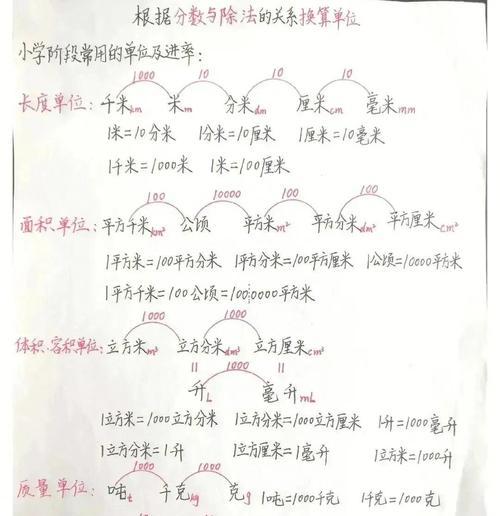 根据分数与除法的关系换算单位
小学阶段常用的单位及进率:
1000 10 10 10
长度单位: 千米km 米m 分米dm 厘米cm 毫米mm
1米=10分米 1分米=10厘米 1厘米=10毫米
1千米=1000米 1米=100厘米
100 10000 100 100
面积单位: 平方千米km² 公顷 平方米m² 平方分米dm² 平方厘米cm²
1平方米=100平方分米 1平方分米=100平方厘米 1公顷=10000平方米
1平方千米=100公顷=1000000平方米
1000 1000
体积、容积单位: 立方米m³ 立方分米dm³ 立方厘米cm³
1000
升L 毫升mL
1立方米=1000立方分米 1立方分米=1000立方厘米 1升=1000毫升
1立方分米=1升 1立方厘米=1毫升 1立方米=1000升
1000 1000
质量单位: 吨t 千克kg 克g 1吨=1000千克 1千克=1000克